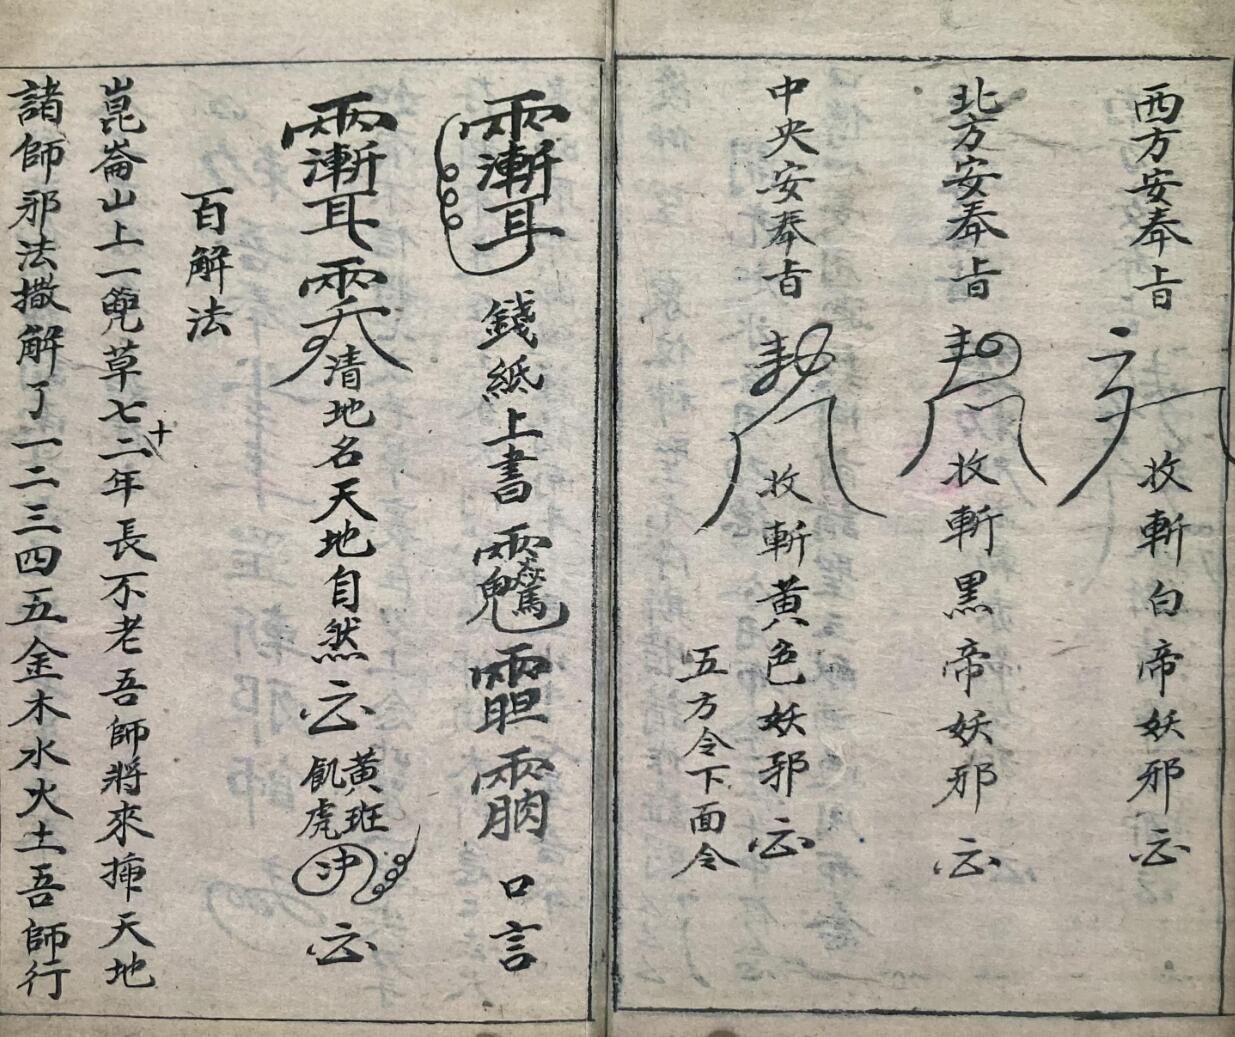 西方安奉旨
收斬白帝妖邪
北方安奉旨
收斬黑帝妖邪
中央安奉旨
收斬黃色妖邪
五方令下面令
錢紙上書
口言
清地名天地自然
黃班
飢虎
百解法
崑崙山上一篼草七十二年長不老吾師將來插天地
諸師邪法撒解了一二三四五金木水火土吾師行